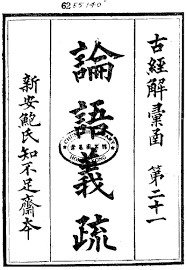 6255140
古經解彙函　第二十一
論語義疏
新安鮑氏知不足齋本